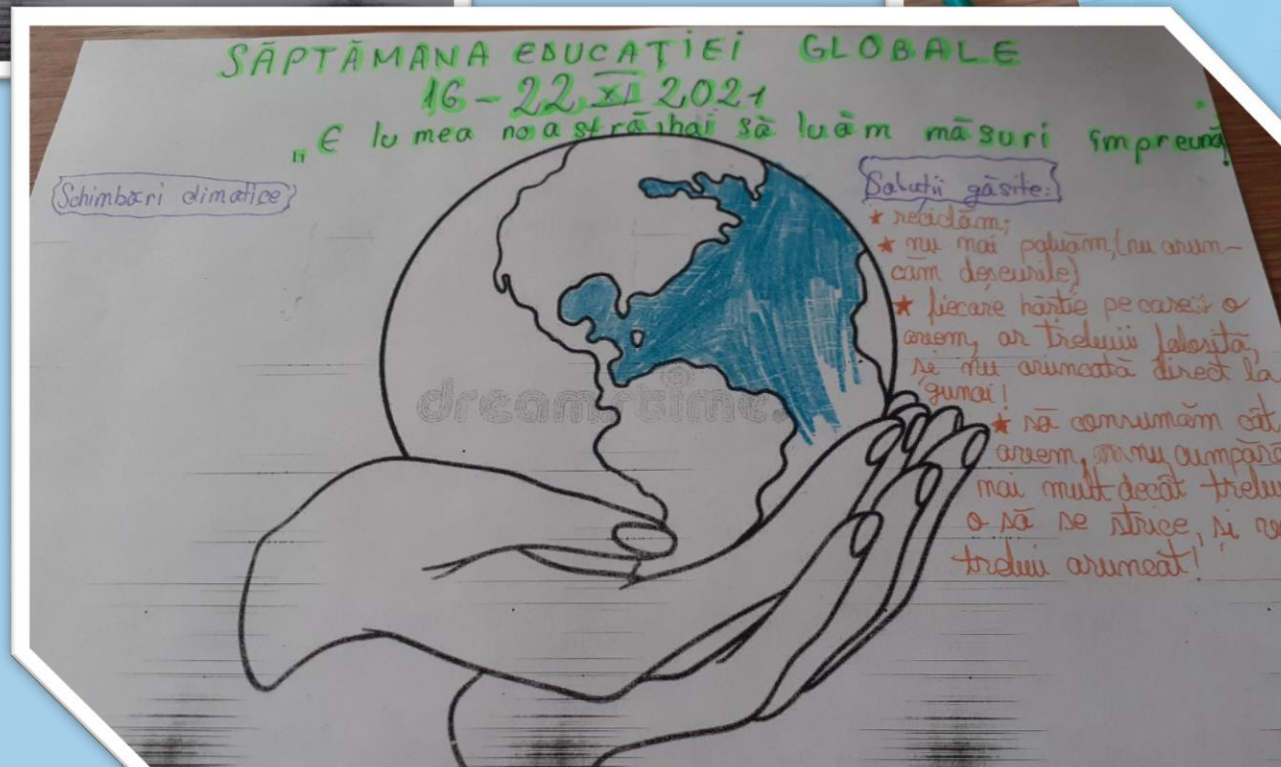 SĂPTĂMÂNA EDUCAȚIEI GLOBALE
16-22 XI 2021
„E lumea noastră, hai să luăm măsuri împreună
Schimbări climatice
Soluții găsite:
★ reciclăm;
★ nu mai poluăm, (nu arun-
căm deșeurile)
★ fiecare hârtie pe care o
avem, ar trebui folosită,
și nu aruncată direct la
gunoi!
★ să consumăm cât
avem, nu cumpără
mai mult decât trebui
o să se strice, și va
trebui aruncat!
dreamstime.